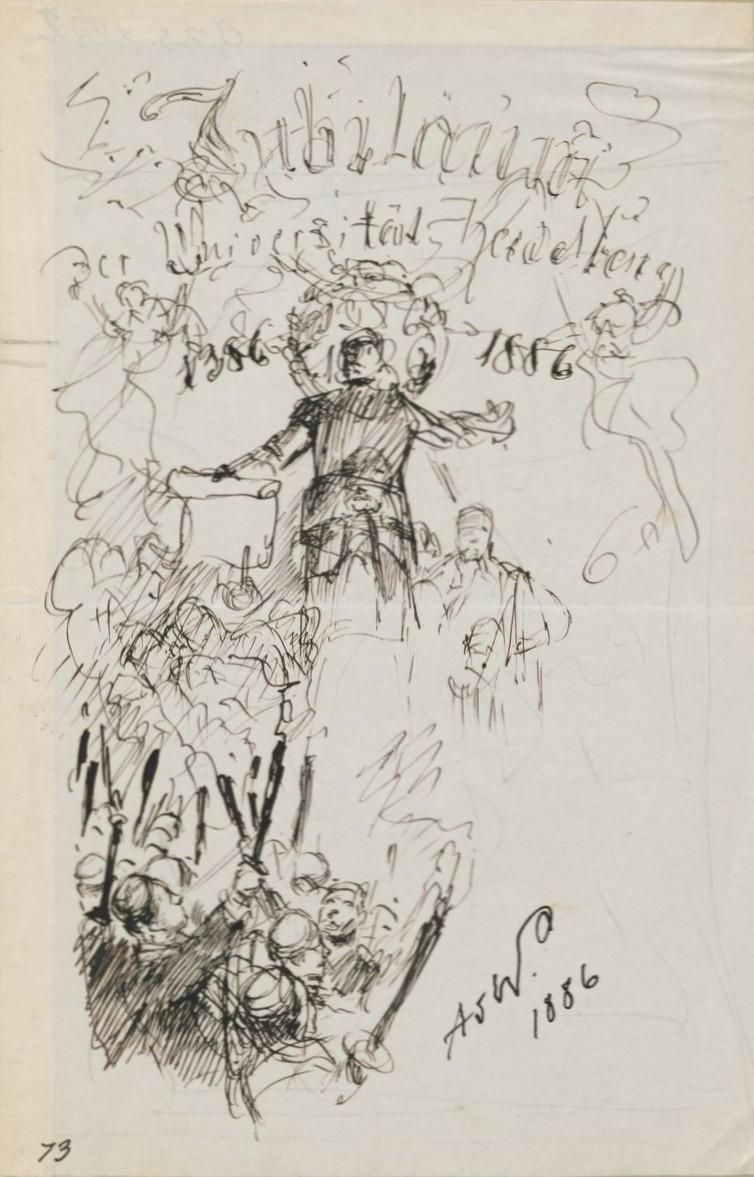 Jubiläum
der Universität Heidelberg
1386 1886
AvW.
1886
73